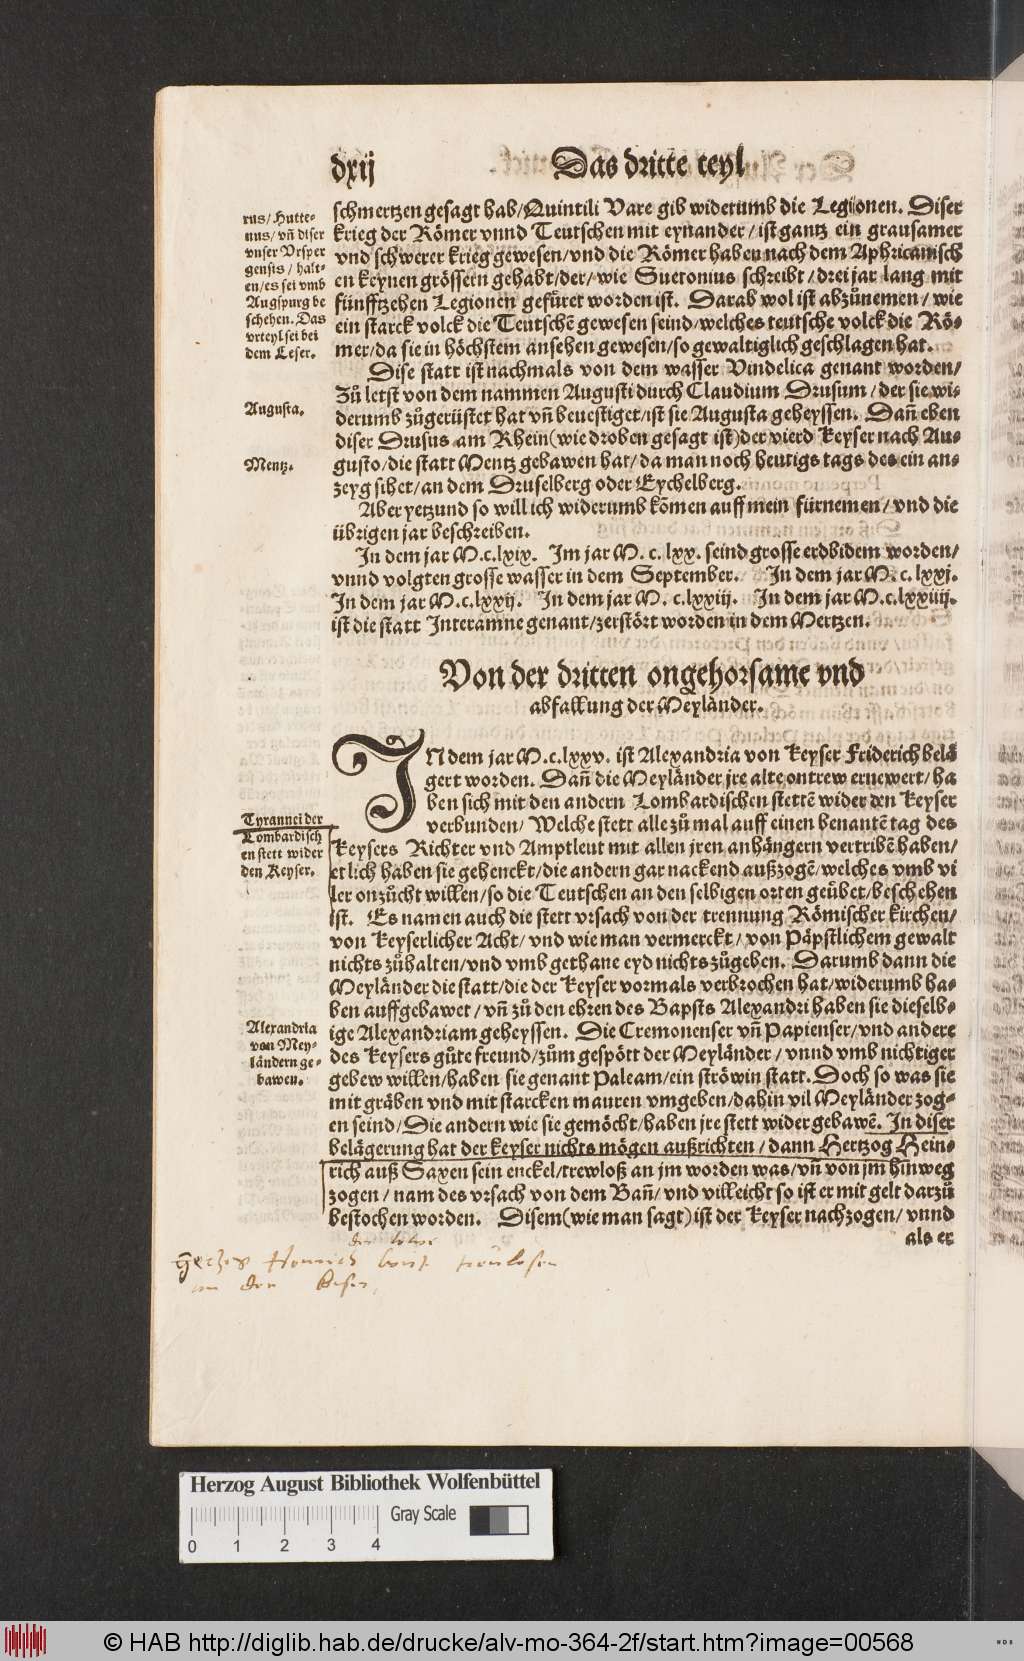 dxij
Das dritte teyl
rus/ Hutte-
nus/ vn̄ diser
vnser Vrsper
gensis/ halt-
en/ es sei vmb
Augspurg be
schehen. Das
vrteyl sei bei
dem Leser.
schmertzen gesagt hab/ Quintili Vare gib widerumb die Legionen. Diser
krieg der Römer vnnd Teutschen mit eynander/ ist gantz ein grausamer
vnd schwerer krieg gewesen/ vnd die Römer haben nach dem Aphricanisch
en keynen grössern gehabt/ der/ wie Suetonius schreibt/ drei jar lang mit
fünfftzehen Legionen gefüret worden ist. Darab wol ist abzůnemen/ wie
ein starck volck die Teutschē gewesen seind/ welches teutsche volck die Rö-
mer/ da sie in höchstem ansehen gewesen/ so gewaltiglich geschlagen hat.
Dise statt ist nachmals von dem wasser Vindelica genant worden/
Zů letst von dem nammen Augusti durch Claudium Drusum/ der sie wi-
Augusta.
derumb zůgerüstet hat vn̄ beuestiget/ ist sie Augusta geheyssen. Dan̄ eben
diser Drusus am Rhein (wie droben gesagt ist) der vierd Keyser nach Au-
Mentz.
gusto/ die statt Mentz gebawen hat/ da man noch heutigs tags des ein an-
zeyg sihet/ an dem Druselberg oder Eychelberg.
Aber yetzund so will ich widerumb kōmen auff mein fürnemen/ vnd die
übrigen jar beschreiben.
In dem jar M.c.lxix. Im jar M. c. lxx. seind grosse erdbidem worden/
vnnd volgten grosse wasser in dem September. In dem jar M. c. lxxj.
In dem jar M.c.lxxij. In dem jar M. c.lxxiij. In dem jar M.c.lxxiiij.
ist die statt Interamne genant/ zerstört worden in dem Mertzen.
Von der dritten ongehorsame vnd
abfallung der Meyländer.
IN dem jar M.c.lxxv. ist Alexandria von Keyser Friderich belä
gert worden. Dan̄ die Meyländer jre alte ontrew ernewert/ ha
ben sich mit den andern Lombardischen stettē wider den Keyser
verbunden/ Welche stett alle zů mal auff einen benantē tag des
Tyrannei der
Lombardisch
en stett wider
den Keyser.
Keysers Richter vnd Amptleut mit allen jren anhängern vertribē haben/
etlich haben sie gehenckt/ die andern gar nackend außzogē/ welches vmb vi
ler onzůcht willen/ so die Teutschen an den selbigen orten geübet/ beschehen
ist. Es namen auch die stett vrsach von der trennung Römischer kirchen/
von Keyserlicher Acht/ vnd wie man vermerckt/ von Päpstlichem gewalt
nichts zůhalten/ vnd vmb gethane eyd nichts zůgeben. Darumb dann die
Meyländer die statt/ die der Keyser vormals verbrochen hat/ widerumb ha-
ben auffgebawet/ vn̄ zů den ehren des Bapsts Alexandri haben sie dieselb-
Alexandria
von Mey-
ländern ge-
bawen.
ige Alexandriam geheyssen. Die Cremonenser vn̄ Papienser/ vnd andere
des Keysers gůte freund/ zům gespött der Meyländer/ vnnd vmb nichtiger
gebew willen/ haben sie genant Paleam/ ein ströwin statt. Doch so was sie
mit gräben vnd mit starcken mauren vmgeben/ dahin vil Meyländer zog-
en seind/ Die andern wie sie gemöcht/ haben jre stett wider gebawē. In diser
belägerung hat der keyser nichts mögen außrichten/ dann Hertzog Hein-
rich auß Saxen sein enckel/ trewloß an jm worden was/ vn̄ von jm hinweg
zogen/ nam des vrsach von dem Ban̄/ vnd villeicht so ist er mit gelt darzů
bestochen worden. Disem (wie man sagt) ist der Keyser nachzogen/ vnnd
als er
Hertzog Henrich
an den Keser
Herzog August Bibliothek Wolfenbüttel
Gray Scale
0 1 2 3 4
© HAB http://diglib.hab.de/drucke/alv-mo-364-2f/start.htm?image=00568